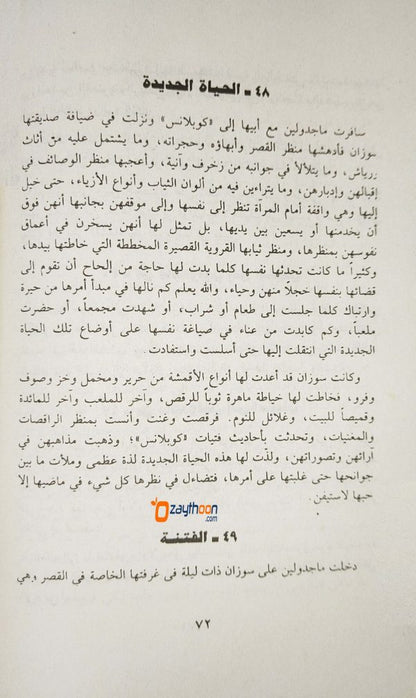 ٤٨ ـ الحياة الجديدة
سافرت ماجدولين مع أبيها إلى «كوبلانس» ونزلت في ضيافة صديقتها
سوزان فأدهشها منظر القصر وأبهاؤه وحجراته، وما يشتمل عليه من أثاث
ورياش، وما يتلألأ في جوانبه من زخرف وآنية، وأعجبها منظر الوصائف في
إقبالهن وإدبارهن، وما يتراءين فيه من ألوان الثياب وأنواع الأزياء، حتى خيل
إليها وهي واقفة أمام المرآة تنظر إلى نفسها وإلى موقفهن بجانبها أنهن فوق
أن يخدمنها أو يسعين بين يديها، بل تمثل لها أنهن يسخرن في أعماق
نفوسهن بمنظرها، ومنظر ثيابها القروية القصيرة المخططة التي خاطتها بيدها،
وكثيراً ما كانت تحدثها نفسها كلما بدت لها حاجة من إلحاح أن تقوم إلى
قضائها بنفسها خجلاً منهن وحياء، والله يعلم كم نالها في مبدأ أمرها من حيرة
وارتباك كلما جلست إلى طعام أو شراب، أو شهدت مجمعاً، أو حضرت
ملعباً، وكم كابدت من عناء في صياغة نفسها على أوضاع تلك الحياة
الجديدة التي انتقلت إليها حتى أسلست واستفادت.
وكانت سوزان قد أعدت لها أنواع الأقمشة من حرير ومخمل وخز وصوف
وفرو، فخاطت لها خياطة ماهرة ثوباً للرقص، وآخر للملعب وآخر للمائدة
وقميصاً للبيت، وغلائل للنوم. فرقصت وغنت وأنست بمنظر الراقصات
والمغنيات، وتحدثت بأحاديث فتيات «كوبلانس»؛ وذهبت مذاهبهن في
آرائهن وتصوراتهن، ولذت لها هذه الحياة الجديدة لذة عظمى وملأت ما بين
جوانحها حتى غلبتها على أمرها، فتضاءل في نظرها كل شيء في ماضيها إلا
حبها لاستيفن.
zaythoon
.com
٤٩ ـ الفتنة
دخلت ماجدولين على سوزان ذات ليلة في غرفتها الخاصة في القصر وهي
٧٢